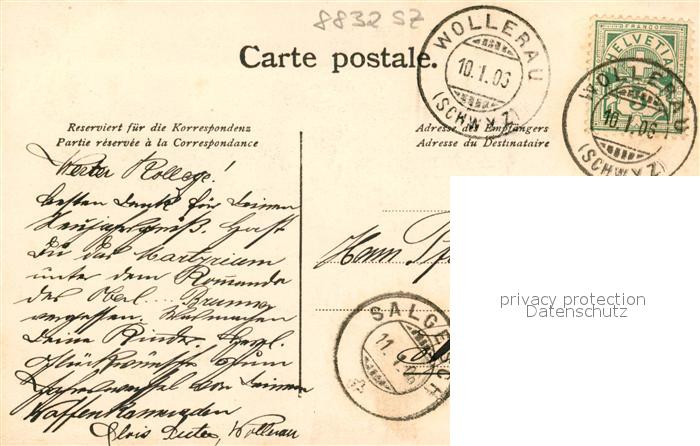 8832 SZ
Carte postale.
WOLLERAU
10.1.06
(SCHWYZ)
HELVETIA
5
WOLLERAU
10.1.06
(SCHWYZ)
Reserviert für die Korrespondenz
Partie réservée à la Correspondance
Adresse des Empfängers
Adresse du Destinataire
Werter Kollege!
besten Dank für Deinen
Neujahrsgruß. Hast
Du das Martyrium
unter dem Komando
des Oberl.... Brunner
vergessen.
Deine Kinder. Herzl.
Glückwünsche zum
von Deinem
Waffenkameraden
Alois Wollerau
Herrn
SALGESCH
11.1.06
privacy protection
Datenschutz